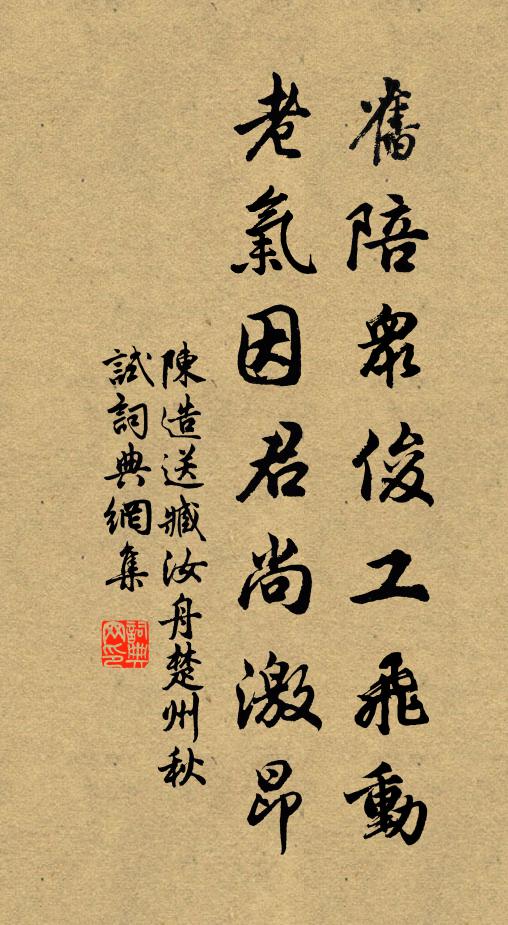 舊陪衆俊工飛動
老氣因君尚激昂
陳造送臧汝舟楚州秋
試詞典網集
詞典網印